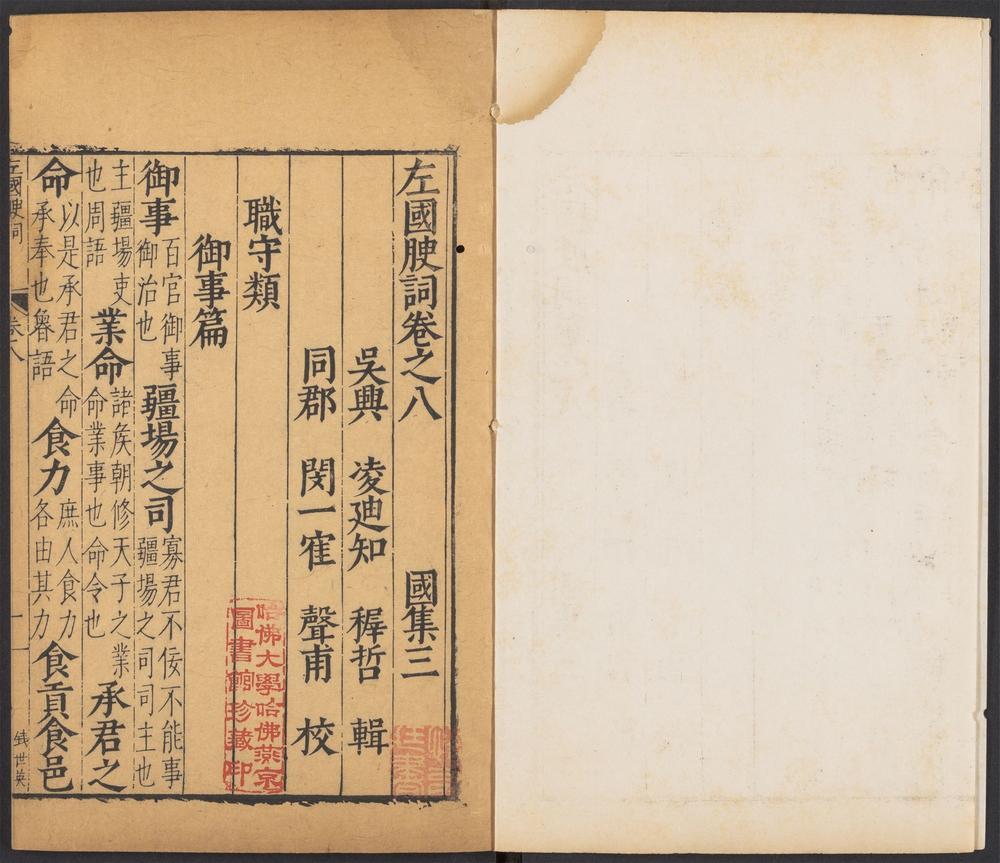 左國腴詞卷之八　國集三
吳興　凌迪知　穉哲　輯
同郡　閔一寉　聲甫　校
職守類
御事篇
御事百官御事御治也疆場之司寡君不佞不能事疆場之司司主也
主疆場吏也周語業命諸矦朝修天子之業命業事也命令也承君之
命以是承君之命承奉也魯語食力庶人食力各由其力食貢食邑
左國腴詞
卷八
一
钱世英
哈佛大學哈佛燕京
圖書館珍藏印